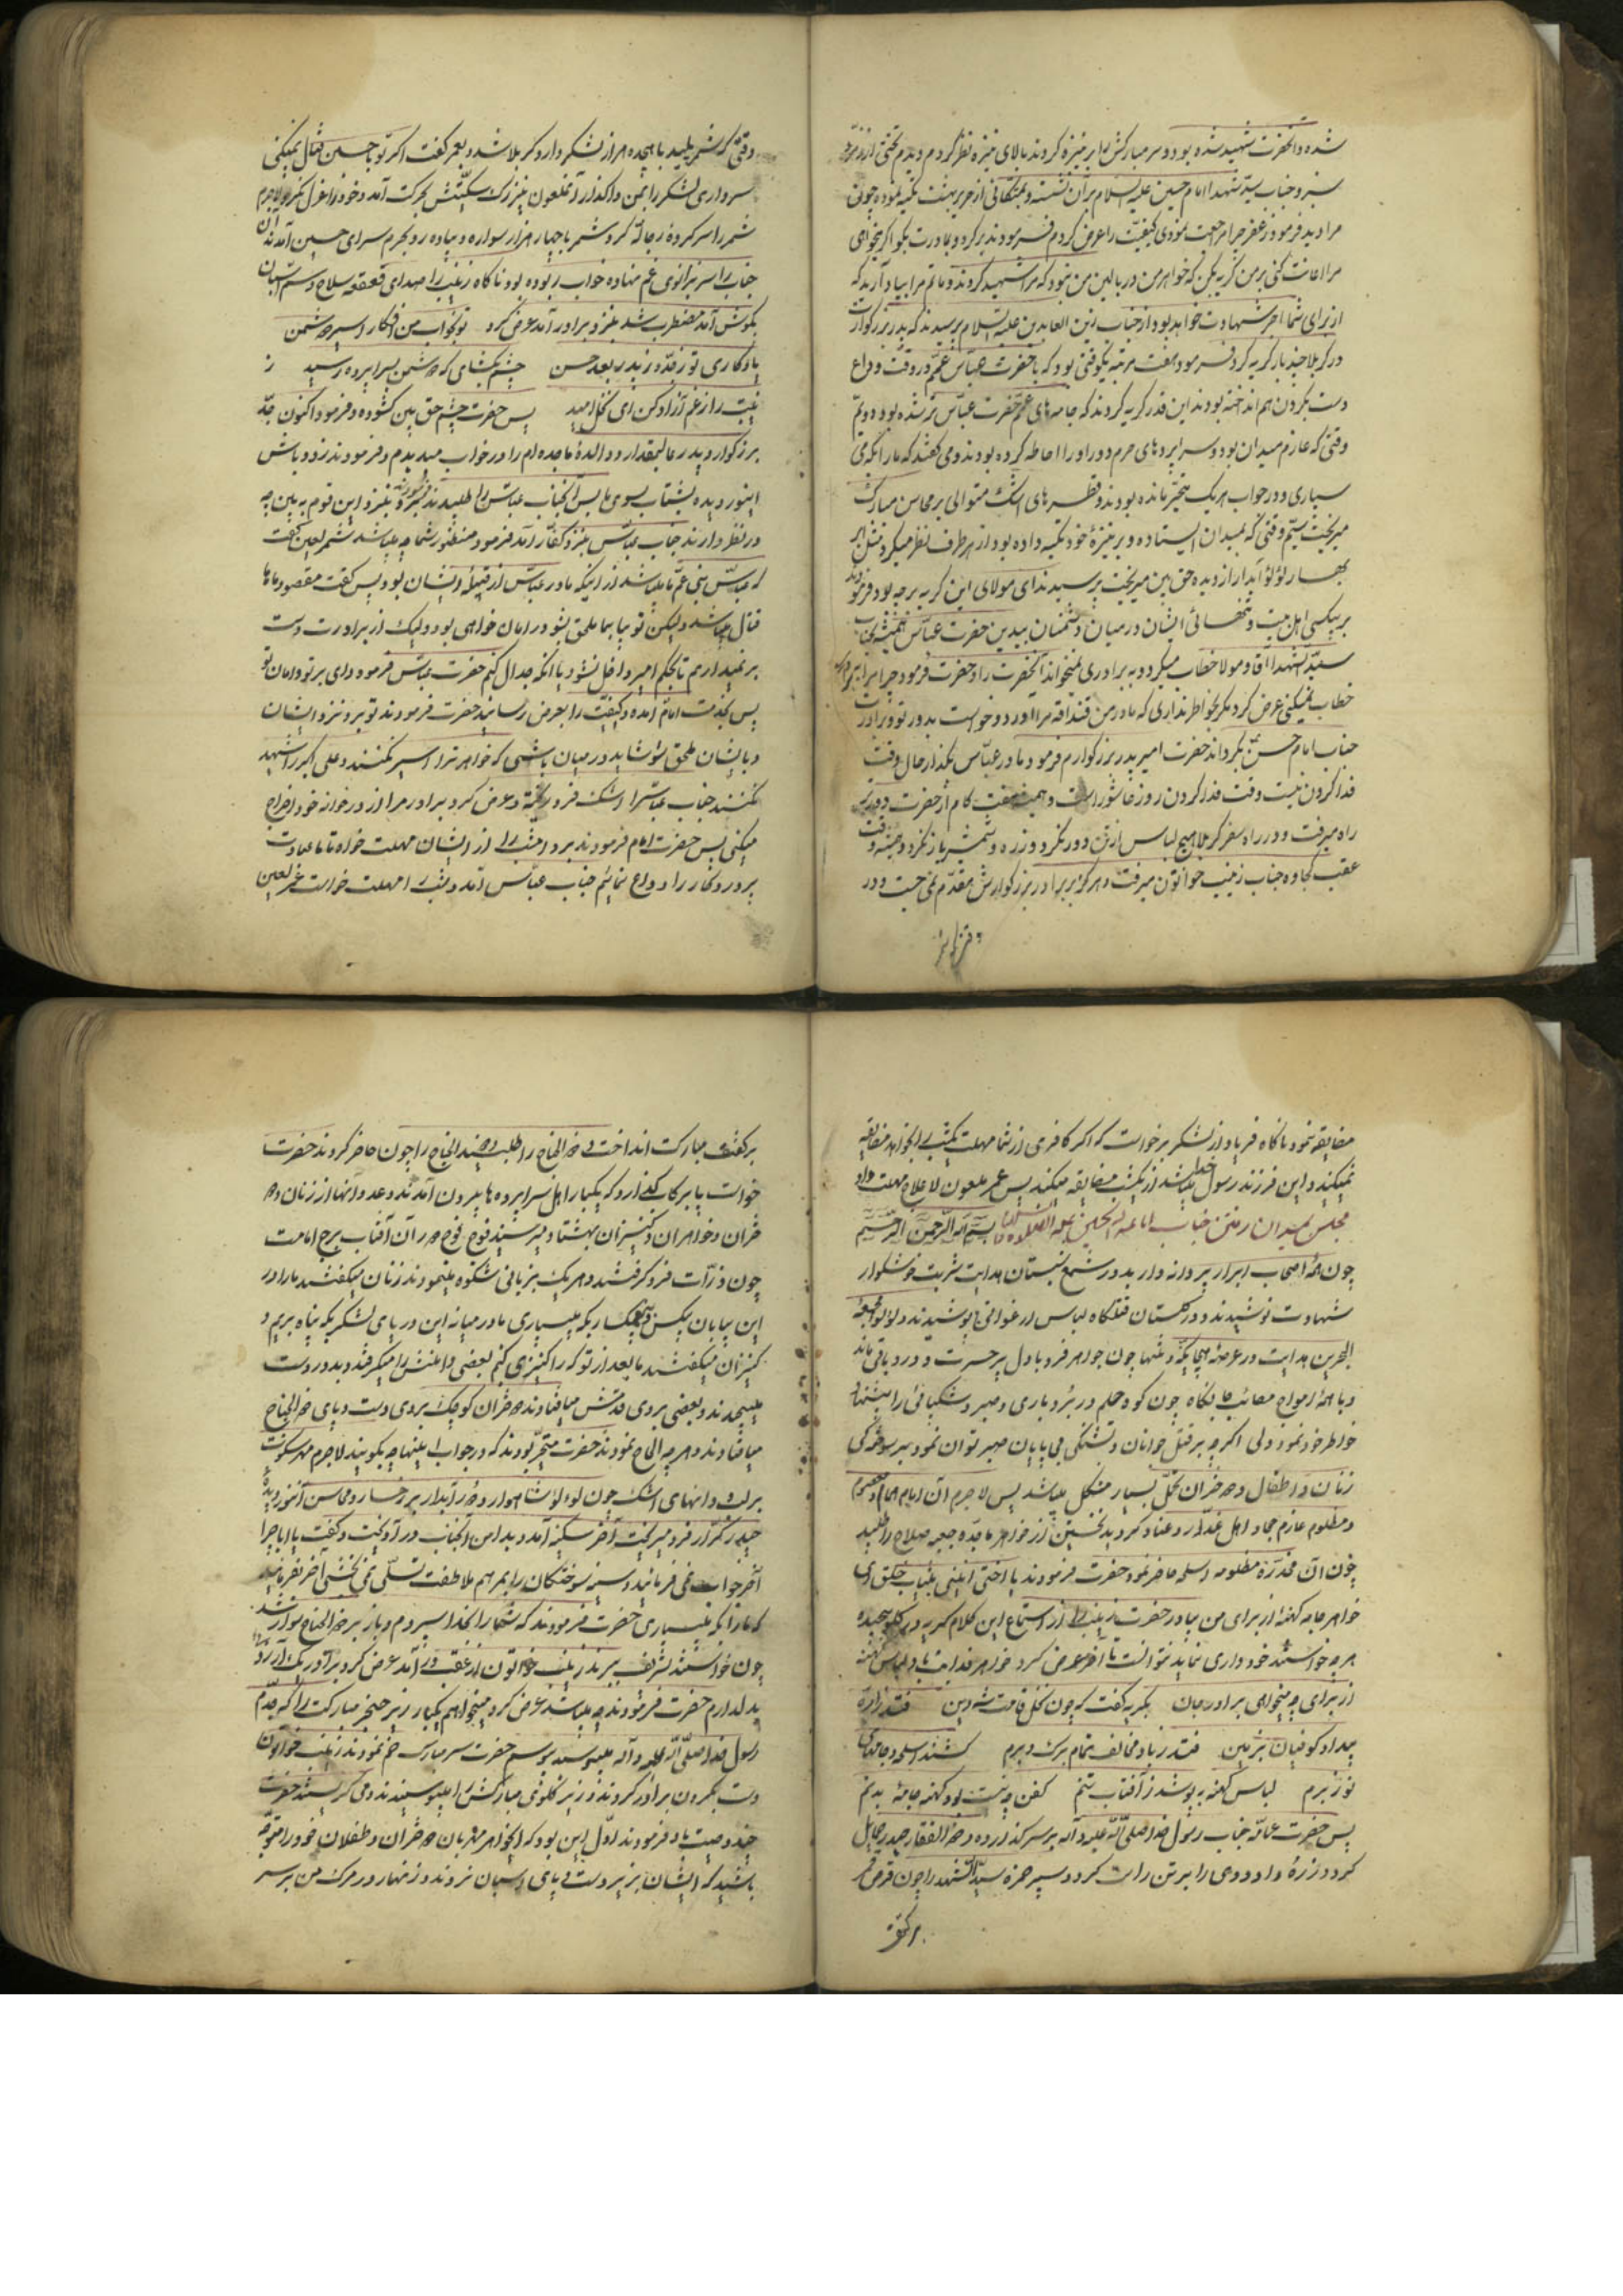 شده و آنحضرت شهید شده بود و سر مبارکش را بر نیزه کردند ببالای نیزه نظر کردم دیدم تختی از زمرد
سبز و جناب سید شهدا امام حسین علیه السلام بر آن نشسته و بمتکائی از حریر بهشت تکیه نموده چون
مرا دید فرمود زعفر چرا مراجعت نمودی کیفیت را عرض کردم فرمودند برگرد و بمادرت بگو اگر میخواهی
مرا اعانت کنی بر من گریه بکن که خواهر من در بالین من نبود که مرا شهید کردند و ماتم مرا بپا دارید که
از برای شما اجر شهادت خواهد بود از جناب زین العابدین علیه السلام پرسیدند که پدر بزرگوارت
در کربلا چند بار گریه کرد فرمود هفت مرتبه یکی وقتی بود که با حضرت عباس عمم در وقت وداع
دست بگردن هم انداخته بودند این قدر گریه کردند که جامه های عمم حضرت عباس تر شده بود دویم
وقتی که عازم میدان بود و سراپرده های حرم دور او را احاطه کرده بودند و می گفتند که ما را بکه می
سپاری و در جواب هر یک متحیر مانده بودند و قطره های اشک متوالی بر محاسن مبارک
میریخت سیم وقتی که بمیدان ایستاده و بر نیزه خود تکیه داده بود از هر طرف نظر میکرد مثل ابر
بهار لؤلؤ آبدار از دیده حق بین میریخت پرسیدند ای مولای این گریه بر چه بود فرمودند
بر بیکسی اهل بیت و تنهائی ایشان در میان دشمنان بیدین حضرت عباس همیشه بجناب
سید الشهدا آقا و مولا خطاب میکرد و به برادری نمیخواند آنحضرت را و حضرت فرمود چرا مرا ببرادری
خطاب نمیکنی عرض کرد مگر بخاطر نداری که مادر من قنداقه مرا آورد و خواست بدور تو و برادرت
جناب امام حسن بگرداند حضرت امیر پدر بزرگوارم فرمود مادر عباس بگذار حال وقت
فدا کردن نیست وقت فدا کردن روز عاشورا است و همیشه هفت گام از حضرت دورتر
راه میرفت و در راه سفر کربلا هیچ لباس از تن دور نکرد و زره و شمشیر باز نکرد و همیشه وقت
عقب کجاوه جناب زینب خواتون میرفت و هرگز بر برادر بزرگوارش مقدم نمی جست و در
وقتی که شمر پلید با هیجده هزار لشکر وارد کربلا شد و بعمر گفت اگر تو با حسین قتال نمیکنی
سرداری لشکر را بمن واگذار آنملعون نیز رگ سگیتش بحرکت آمد و خود را عزل نکرد و لاجرم
شمر را سرکرده رجاله کرد و شمر با چهار هزار سواره و پیاده رو بحرم سرای حسین آمدند آن
جناب را سر بزانوی غم نهاده خواب ربوده بود ناگاه زینب را صدای قعقعه سلاح و سم اسبان
بگوش آمد مضطرب شد بنزد برادر آمد عرض کرد تو بخواب من افکار اسیر دشمن
یادگاری تو ز جد و ز پدر بعد حسن چشم بگشای که دشمن بسراپرده رسید ز
زینبت را ز غم آزاد کن ای نخل امید پس حضرت چشم حق بین گشوده و فرمود اکنون جد
بزرگوار و پدر عالیمقدار و والده ماجده ام را در خواب میدیدم و فرمودند زود باش
اینور دیده بشتاب بسوی ما پس آنجناب عباس را طلبیدند فرمودند برو بنزد این قوم به بین چه
در نظر دارند جناب عباس بنزد کفار آمد فرمود منظور شما چه میباشد شمر لعین گفت
که عباس بنی عم ما میباشد از اینکه مادر عباس از قبیله ایشان بود پس گفت مقصود ماها
قتال میباشد ولیکن تو بیا بما ملحق بشو در امان خواهی بود ولیک از برادرت دست
بر نمیداریم تا بحکم امیر داخل نشود یا آنکه جدال کنم حضرت عباس فرمود وای بر تو و امان تو
پس بخدمت امام آمده و کیفیت را بعرض رسانید حضرت فرمودند تو برو نزد ایشان
و بایشان ملحق شو شاید در میان باشی که خواهر ترا اسیر نکنند و علی اکبر را شهید
نکنند جناب عباس را اشک فرو ریخته و عرض کرد برادر مرا از در خانه خود اخراج
میکنی پس حضرت امام فرمودند برو امشب را از ایشان مهلت خواه تا ما عبادت
پروردگار را وداع نمائیم جناب عباس آمد و یشب را مهلت خواست عمر لعین
مضایقه نمود ناگاه فریاد از لشکر برخواست که اگر کافری از شما مهلت یکشب را بخواهد مضایقه
نمیکنید و این فرزند رسول خدا میباشد از یکشب مضایقه میکنید پس عمر ملعون لاعلاج مهلت داد
مجلس بمیدان رفتن جناب ابا عبد الله الحسین علیه الصلوه و السلام بسم الله الرحمن الرحیم
چون همه اصحاب ابرار پروانه وار بدور شمع شبستان هدایت شربت خوشگوار
شهادت نوشیدند و در گلستان قتلگاه لباس ارغوانی پوشیدند و لؤلؤ لجه
البحرین هدایت در عرصه هیجا یکه و تنها چون جواهر فرد با دل پر حسرت و درد باقی ماند
و با همه امواج مصائب جانکاه چون کوه و حلم در بردباری و صبر و شکیبائی را پیشنهاد
خواطر خود نمود ولی اگر چه بر قتل جوانان و تشنگی بی پایان صبر توان نمود بر سوختگی
زنان و اطفال و دختران تحمل بسیار مشکل میباشد پس لاجرم آن امام همام معصوم
و مظلوم عازم جهاد اهل غدار و عناد گردید نخستین از خواهر ماجده جبعه صلاح را طلبید
چون آن مخدره مظلومه اسلحه حاضر نمود حضرت فرمودند یا اختی ایتینی بثیاب خلق ای
خواهر جامه کهنه از برای من بیاور حضرت زینب را از استماع این کلام گریه در گلو پیچیده
هر چه خواستند خود داری نماید نتوانست تا آخر عرض کرد خواهر فدایت باد لباس کهنه
از برای چه میخواهی برادر جان بگریه گفت که چون نخل قامت شه دین فتد ز اره
بیداد کوفیان بزمین فتد ز باد مخالف تمام برک و برم کشند اسلحه و جامهای
نو ز برم لباس کهنه بپوشد ز آفتاب تنم کفن چه نیست بود کهنه جامه بدنم
پس حضرت عمامه جناب رسول خدا صلی الله علیه و آله بر سر گذارده و ذو الفقار حیدر حمایل
کرد و زره داودی را بر تن راست کرد و سپر حمزه سید الشهدا را چون قرص قمر
بر کتف
بر کتف مبارک انداخت و ذو الجناح را طلبید ذو الجناح را چون حاضر کردند حضرت
خواست پا بر رکاب گذارد که یکبار اهل سراپرده ها بیرون آمدند و عدد آنها از زنان و
دختران و خواهران و کنیزان بهشتاد میرسید فوج فوج دور آن آفتاب برج امامت
چون ذرات فرو گرفتند و هر یک بزبانی شکوه مینمودند زنان میگفتند ما را در
این بیابان بیکس و بیغمگسار بکه میسپاری ما در میانه این دریای لشکر بکه پناه بریم و
کنیزان میگفتند ما بعد از تو که را کنیزی کنیم بعضی دامنش را میگرفتند و بدور دست
میپیچیدند و بعضی بروی قدمش میافتادند دختران کوچک بروی دست و پای ذو الجناح
میافتادند و هر چه الحاح نمودند حضرت متحیر بودند که در جواب اینها چه بگویند لاجرم مهر سکوت
بر لب و دانهای اشک چون لؤلؤ شاهوار و در آبدار بر رخسار و محاسن آننور دیده
حیدر کرار فرو میریخت آخر سکینه آمد و بدامن آنجناب در آویخت و گفت یا ابا چرا
آخر جواب نمی فرمائید و سینه سوختگان را بمرهم ملاطفت تسلی نمی بخشی آخر بفرمائید
که ما را بکه میسپاری حضرت فرمودند که شما را بخدا سپردم و باز بر ذو الجناح سوار شد
چون خواستند تشریف ببرند زینب خواتون از عقب در آمد عرض کرد برادر یک آرزو
بدل دارم حضرت فرمودند چه میباشد عرض کرد میخواهم یکبار زیر حنجر مبارکت را که جدم
رسول خدا صلی الله علیه و آله میبوسید ببوسم حضرت سر مبارک خم نمودند زینب خواتون
دست بگردن برادر کردند و زیر گلوی مبارکش را میبوسیدند و می گریستند حضرت
چند وصیت باو فرمودند اول این بود که ایخواهر مهربان دختران و طفلان خود را متوجه
باشید که ایشان بزیر دست و پای اسبان نروند و زنهار در مرگ من بر سر